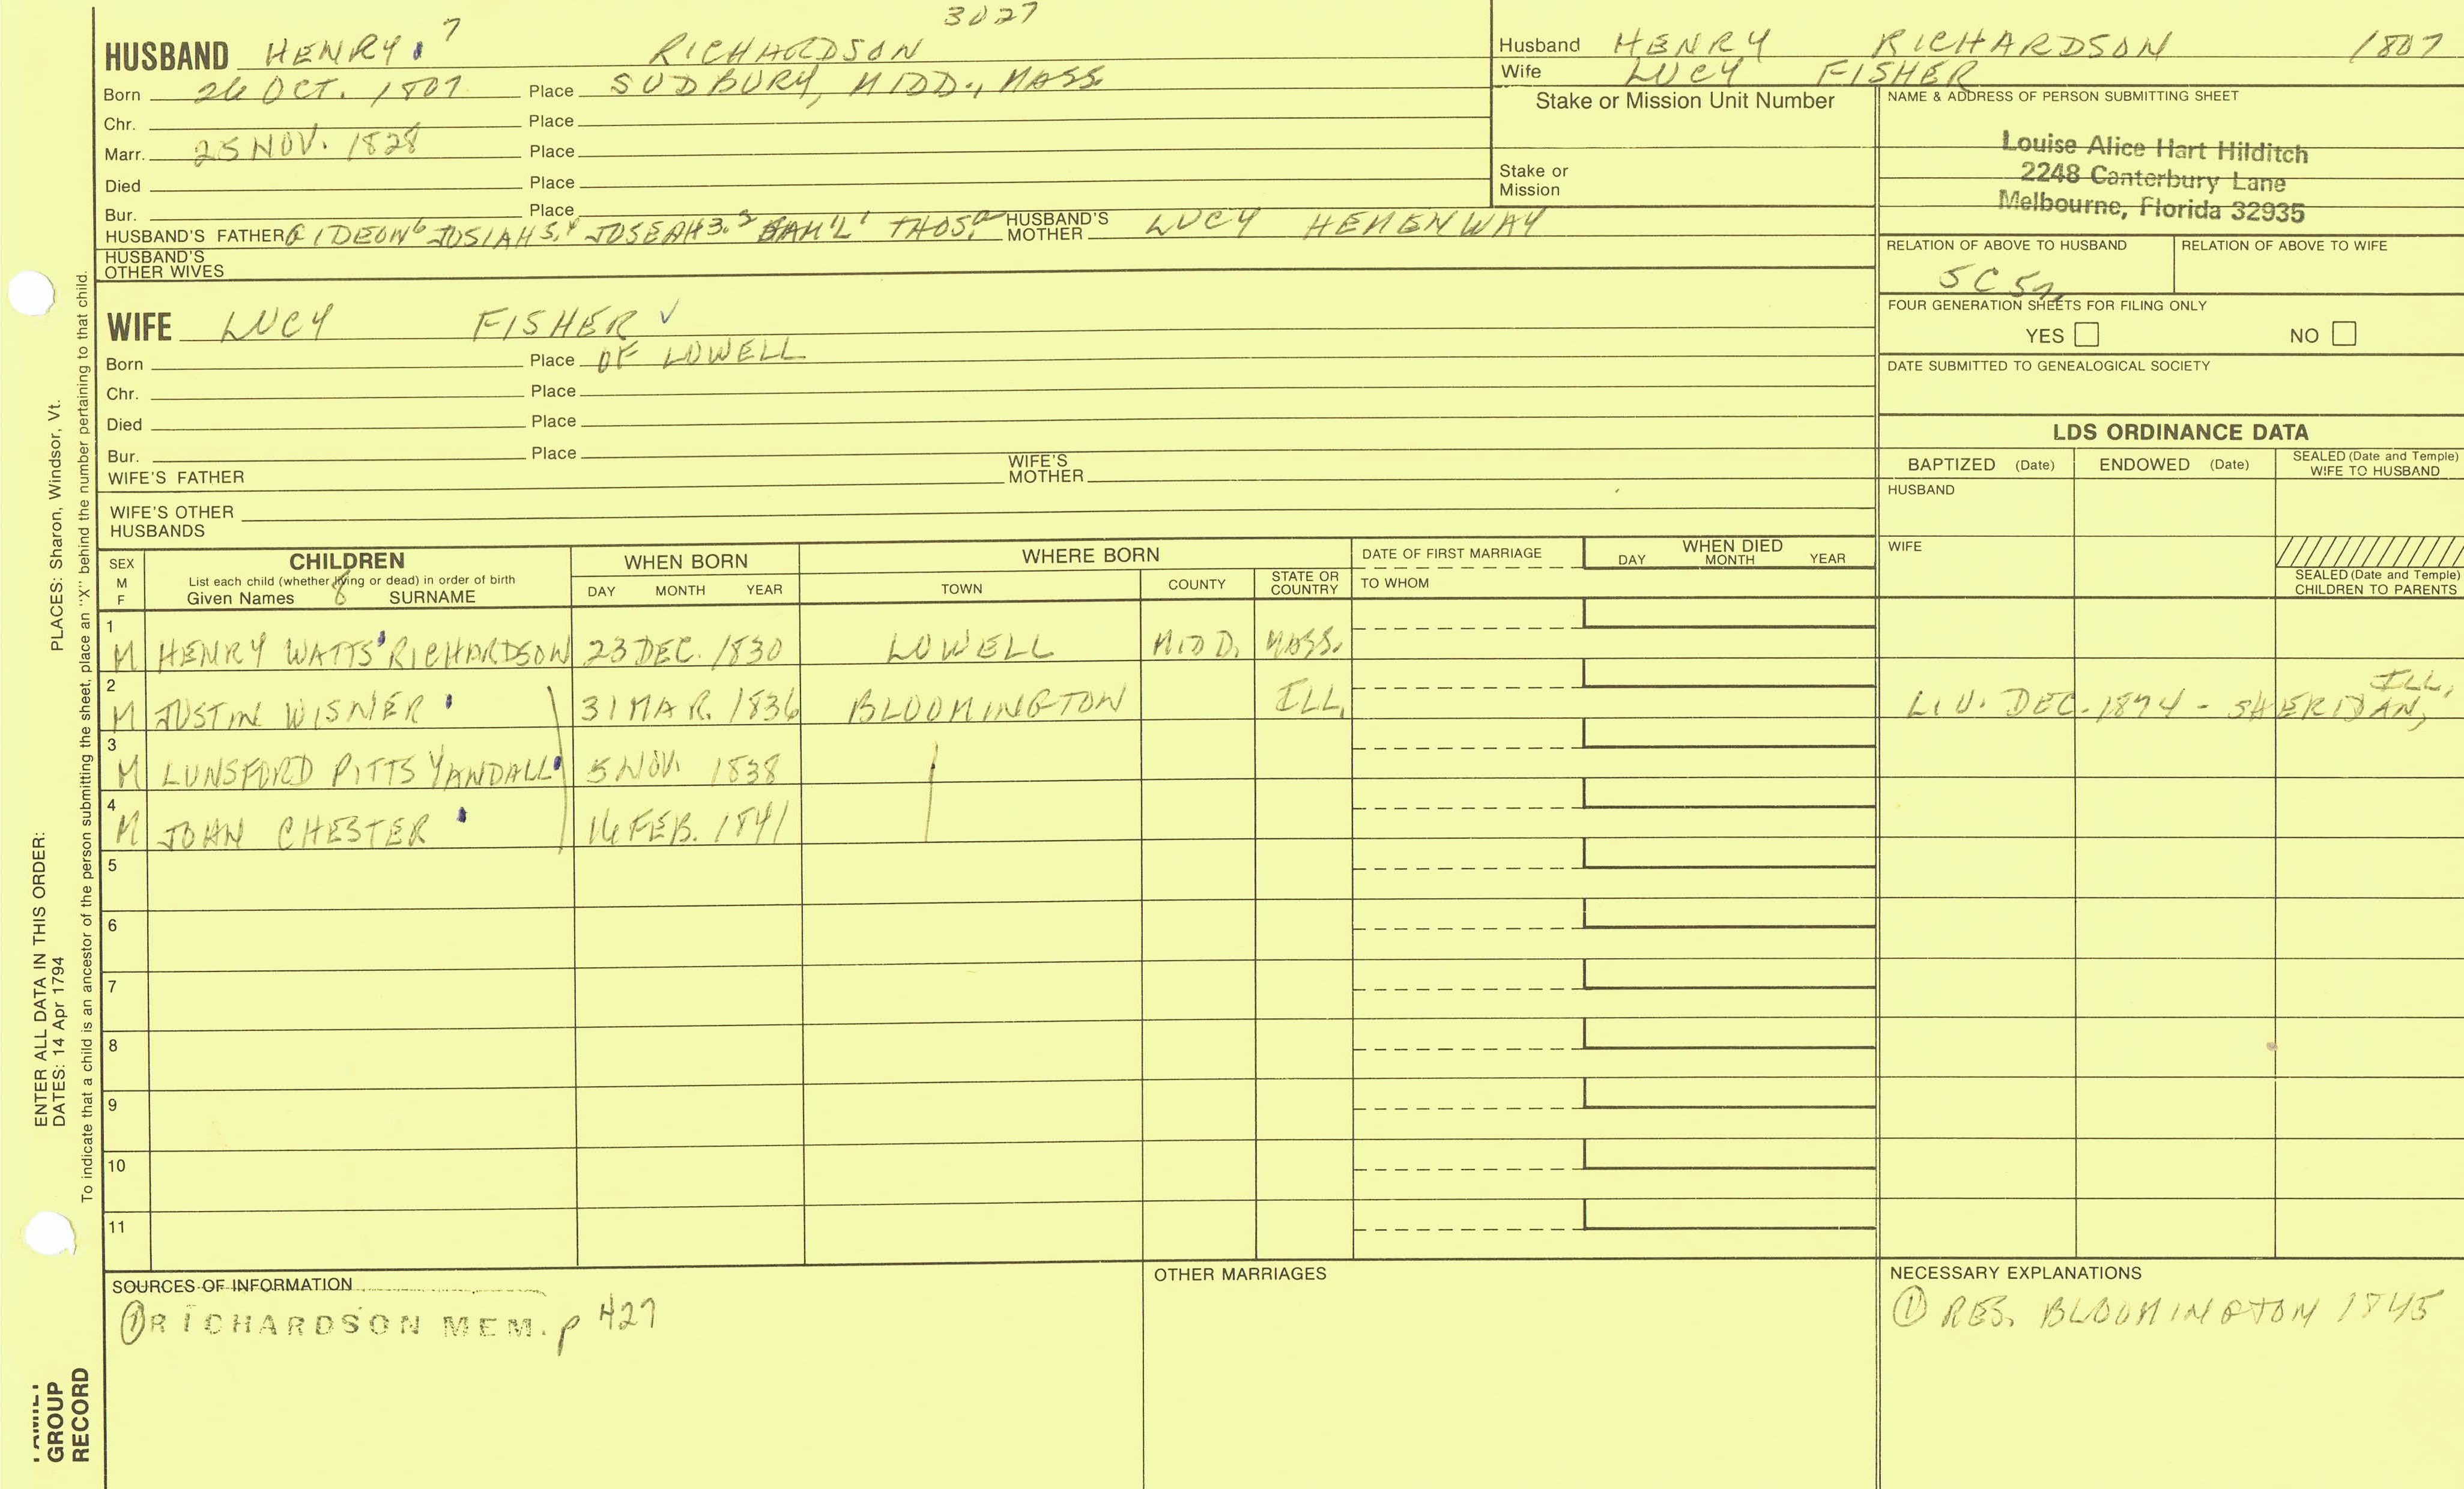 3027
HUSBAND HENRY 7 RICHARDSON
Born 26 OCT. 1807 Place SUDBURY, MIDD., MASS
Chr. Place
Marr. 25 NOV. 1828 Place
Died Place
Bur. Place
HUSBAND'S FATHER GIDEON6 JOSIAH5,4 JOSEPH3,2 SAM'L1 THOS.a HUSBAND'S MOTHER LUCY HEMENWAY
HUSBAND'S OTHER WIVES
Husband HENRY RICHARDSON 1807
Wife LUCY FISHER
Stake or Mission Unit Number
Stake or Mission
NAME & ADDRESS OF PERSON SUBMITTING SHEET
Louise Alice Hart Hilditch
2248 Canterbury Lane
Melbourne, Florida 32935
RELATION OF ABOVE TO HUSBAND RELATION OF ABOVE TO WIFE
5C5r
FOUR GENERATION SHEETS FOR FILING ONLY
YES NO
DATE SUBMITTED TO GENEALOGICAL SOCIETY
WIFE LUCY FISHER ✓
Born Place OF LOWELL
Chr. Place
Died Place
Bur. Place
WIFE'S FATHER WIFE'S MOTHER
WIFE'S OTHER HUSBANDS
LDS ORDINANCE DATA
BAPTIZED (Date) ENDOWED (Date) SEALED (Date and Temple) WIFE TO HUSBAND
HUSBAND
WIFE
SEALED (Date and Temple) CHILDREN TO PARENTS
SEX M F CHILDREN WHEN BORN WHERE BORN DATE OF FIRST MARRIAGE WHEN DIED
List each child (whether living or dead) in order of birth
Given Names 8 SURNAME DAY MONTH YEAR TOWN COUNTY STATE OR COUNTRY TO WHOM DAY MONTH YEAR
1 M HENRY WATTS RICHARDSON 23 DEC. 1830 LOWELL MIDD. MASS.
2 M JUSTIN WISNER 31 MAR. 1836 BLOOMINGTON ILL. LIV. DEC. 1874 - SHERIDAN, ILL.
3 M LUNSFORD PITTS YANDALL 5 NOV. 1838
4 M JOHN CHESTER 16 FEB. 1841
5
6
7
8
9
10
11
SOURCES OF INFORMATION
① RICHARDSON MEM. p 427
OTHER MARRIAGES
NECESSARY EXPLANATIONS
① RES. BLOOMINGTON 1845
ENTER ALL DATA IN THIS ORDER:
DATES: 14 Apr 1794 PLACES: Sharon, Windsor, Vt.
To indicate that a child is an ancestor of the person submitting the sheet, place an "X" behind the number pertaining to that child.
FAMILY
GROUP
RECORD